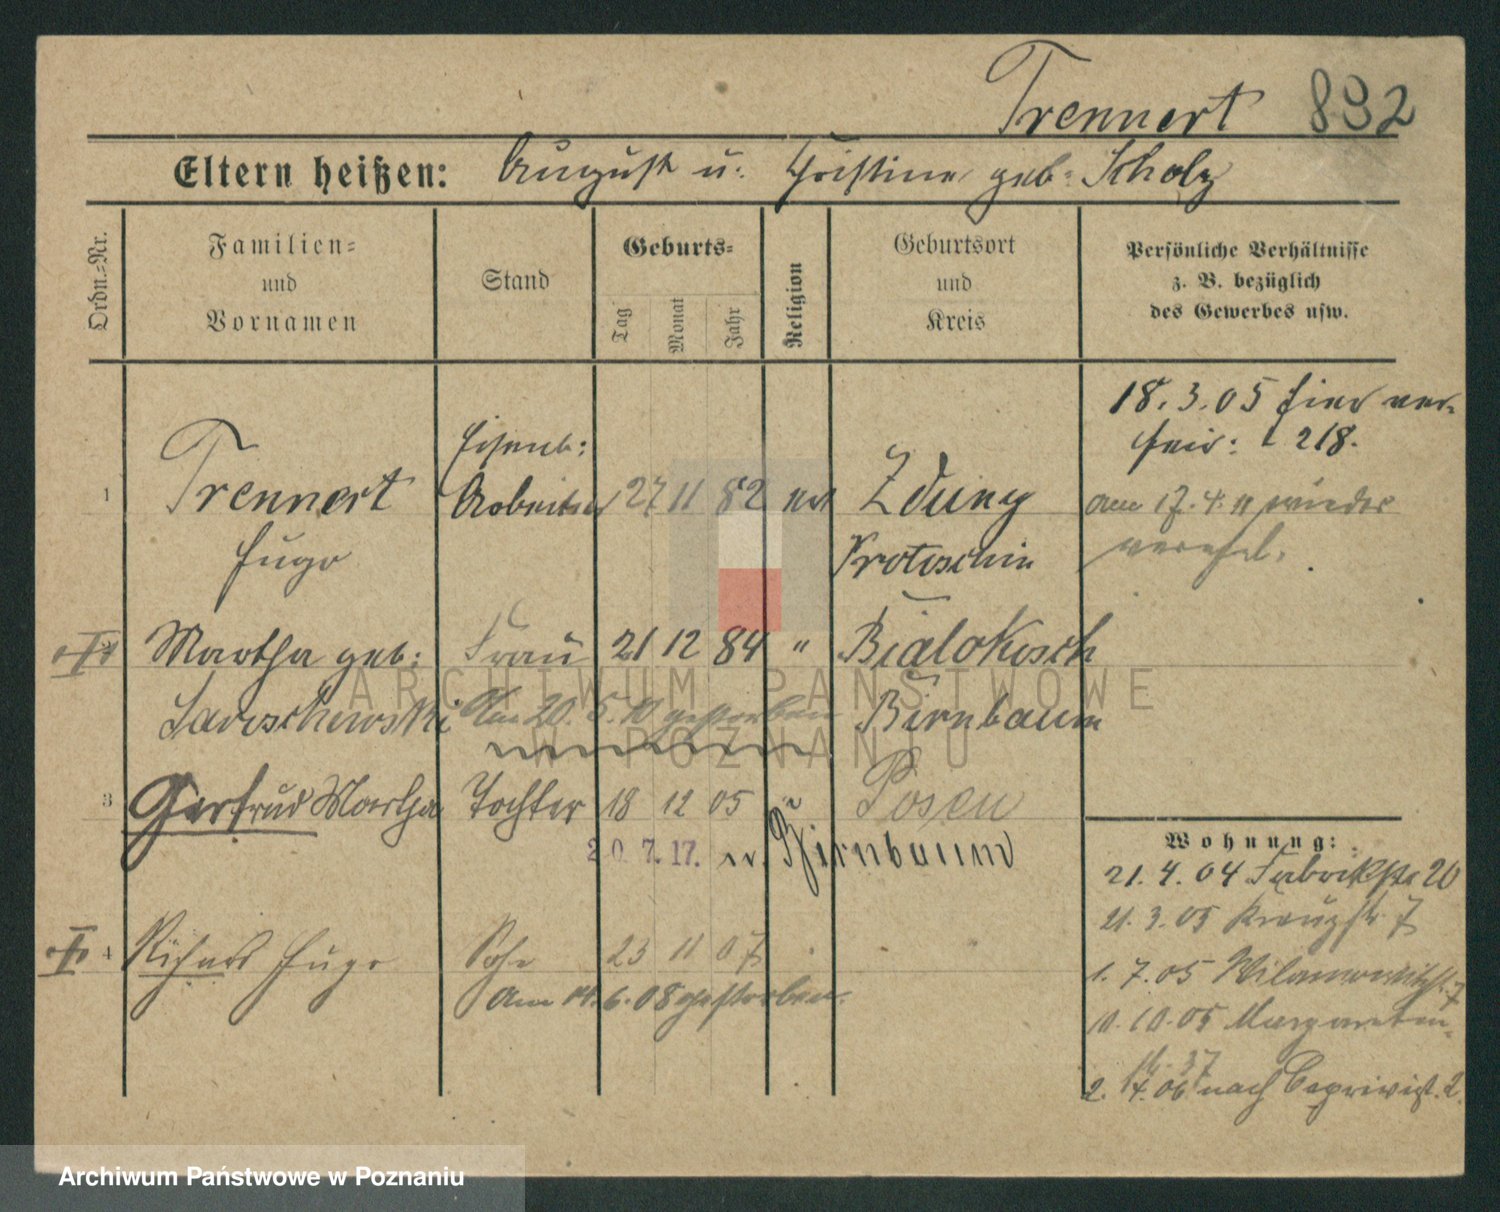 Trennert 892
Eltern heißen: August u. Christine geb. Scholz
Ordn.=Nr.
Familien=
und
Vornamen
Stand
Geburts=
Tag
Monat
Jahr
Religion
Geburtsort
und
Kreis
Persönliche Verhältnisse
z. B. bezüglich
des Gewerbes usw.
18.3.05 hier ver-
heir: 218.
am 17.4.11 wieder
vereh.
1 Trennert
Hugo
Eisenb:
Arbeiter
27 11 82
Zduny
Krotoschin
Martha geb:
Frau 21 12 84 "
Bialokosch
Birnbaum
am 20.5.10 gestorben
3 Gertrud Martha Tochter 18 12 05 " Posen
20.7.17. n. Birnbaum
4 Richard Hugo Sohn 23 11 07
am 14.6.08 gestorben.
Wohnung:
21.4.04 Fabrikstr 20
21.3.05 Kreuzstr 7
1.7.05 Wilamowitzstr. 7
10.10.05 Margareten-
str. 37
2. 4. 06 nach Caprivist. 2.
ARCHIWUM PAŃSTWOWE
W POZNANIU
Archiwum Państwowe w Poznaniu